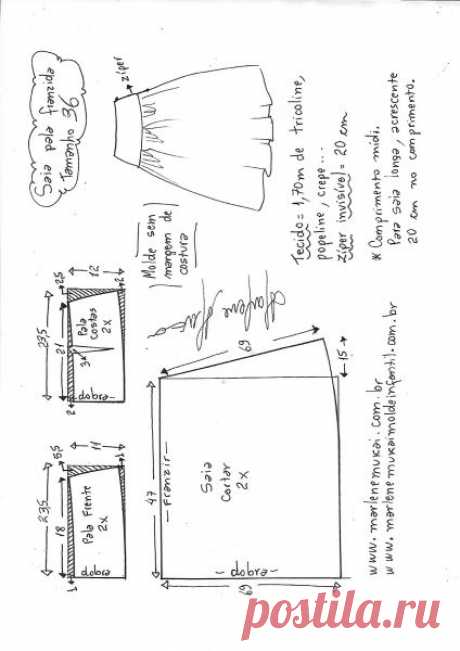 Saia pala franzida
Tamanho 36
zíper
Tecido = 1,70m de tricoline,
popeline, crepe...
zíper invisível = 20 cm
* Comprimento midi.
Para saia longa, acrescente
20 cm no comprimento.
Molde sem
margem de
costura
23,5
21
2
2,5
12
2
3
Pala
costas
2x
-dobra-
23,5
18
1
5,5
11
1
Pala Frente
2x
-dobra-
47
- Franzir -
Saia
Cortar
2x
- dobra -
69
69
15
www.marlenemukai.com.br
www.marlenemukaimoldeinfantil.com.br
postila.ru